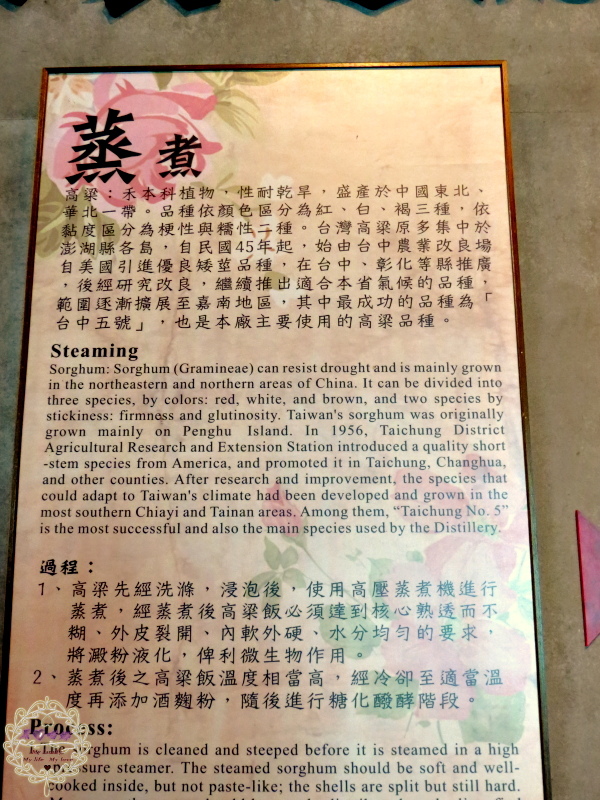 蒸煮
高粱：禾本科植物，性耐乾旱，盛產於中國東北、
華北一帶。品種依顏色區分為紅、白、褐三種，依
黏度區分為梗性與糯性二種。台灣高粱原多集中於
澎湖縣各島，自民國45年起，始由台中農業改良場
自美國引進優良矮莖品種，在台中、彰化等縣推廣
，後經研究改良，繼續推出適合本省氣候的品種，
範圍逐漸擴展至嘉南地區，其中最成功的品種為「
台中五號」，也是本廠主要使用的高粱品種。
Steaming
Sorghum: Sorghum (Gramineae) can resist drought and is mainly grown
in the northeastern and northern areas of China. It can be divided into
three species, by colors: red, white, and brown, and two species by
stickiness: firmness and glutinosity. Taiwan's sorghum was originally
grown mainly on Penghu Island. In 1956, Taichung District
Agricultural Research and Extension Station introduced a quality short
-stem species from America, and promoted it in Taichung, Changhua,
and other counties. After research and improvement, the species that
could adapt to Taiwan's climate had been developed and grown in the
most southern Chiayi and Tainan areas. Among them, “Taichung No. 5”
is the most successful and also the main species used by the Distillery.
過程：
1、高粱先經洗滌，浸泡後，使用高壓蒸煮機進行
蒸煮，經蒸煮後高粱飯必須達到核心熟透而不
糊、外皮裂開、內軟外硬、水分均勻的要求，
將澱粉液化，俾利微生物作用。
2、蒸煮後之高粱飯溫度相當高，經冷卻至適當溫
度再添加酒麴粉，隨後進行糖化醱酵階段。
Process:
sorghum is cleaned and steeped before it is steamed in a high
pressure steamer. The steamed sorghum should be soft and well-
cooked inside, but not paste-like; the shells are split but still hard.